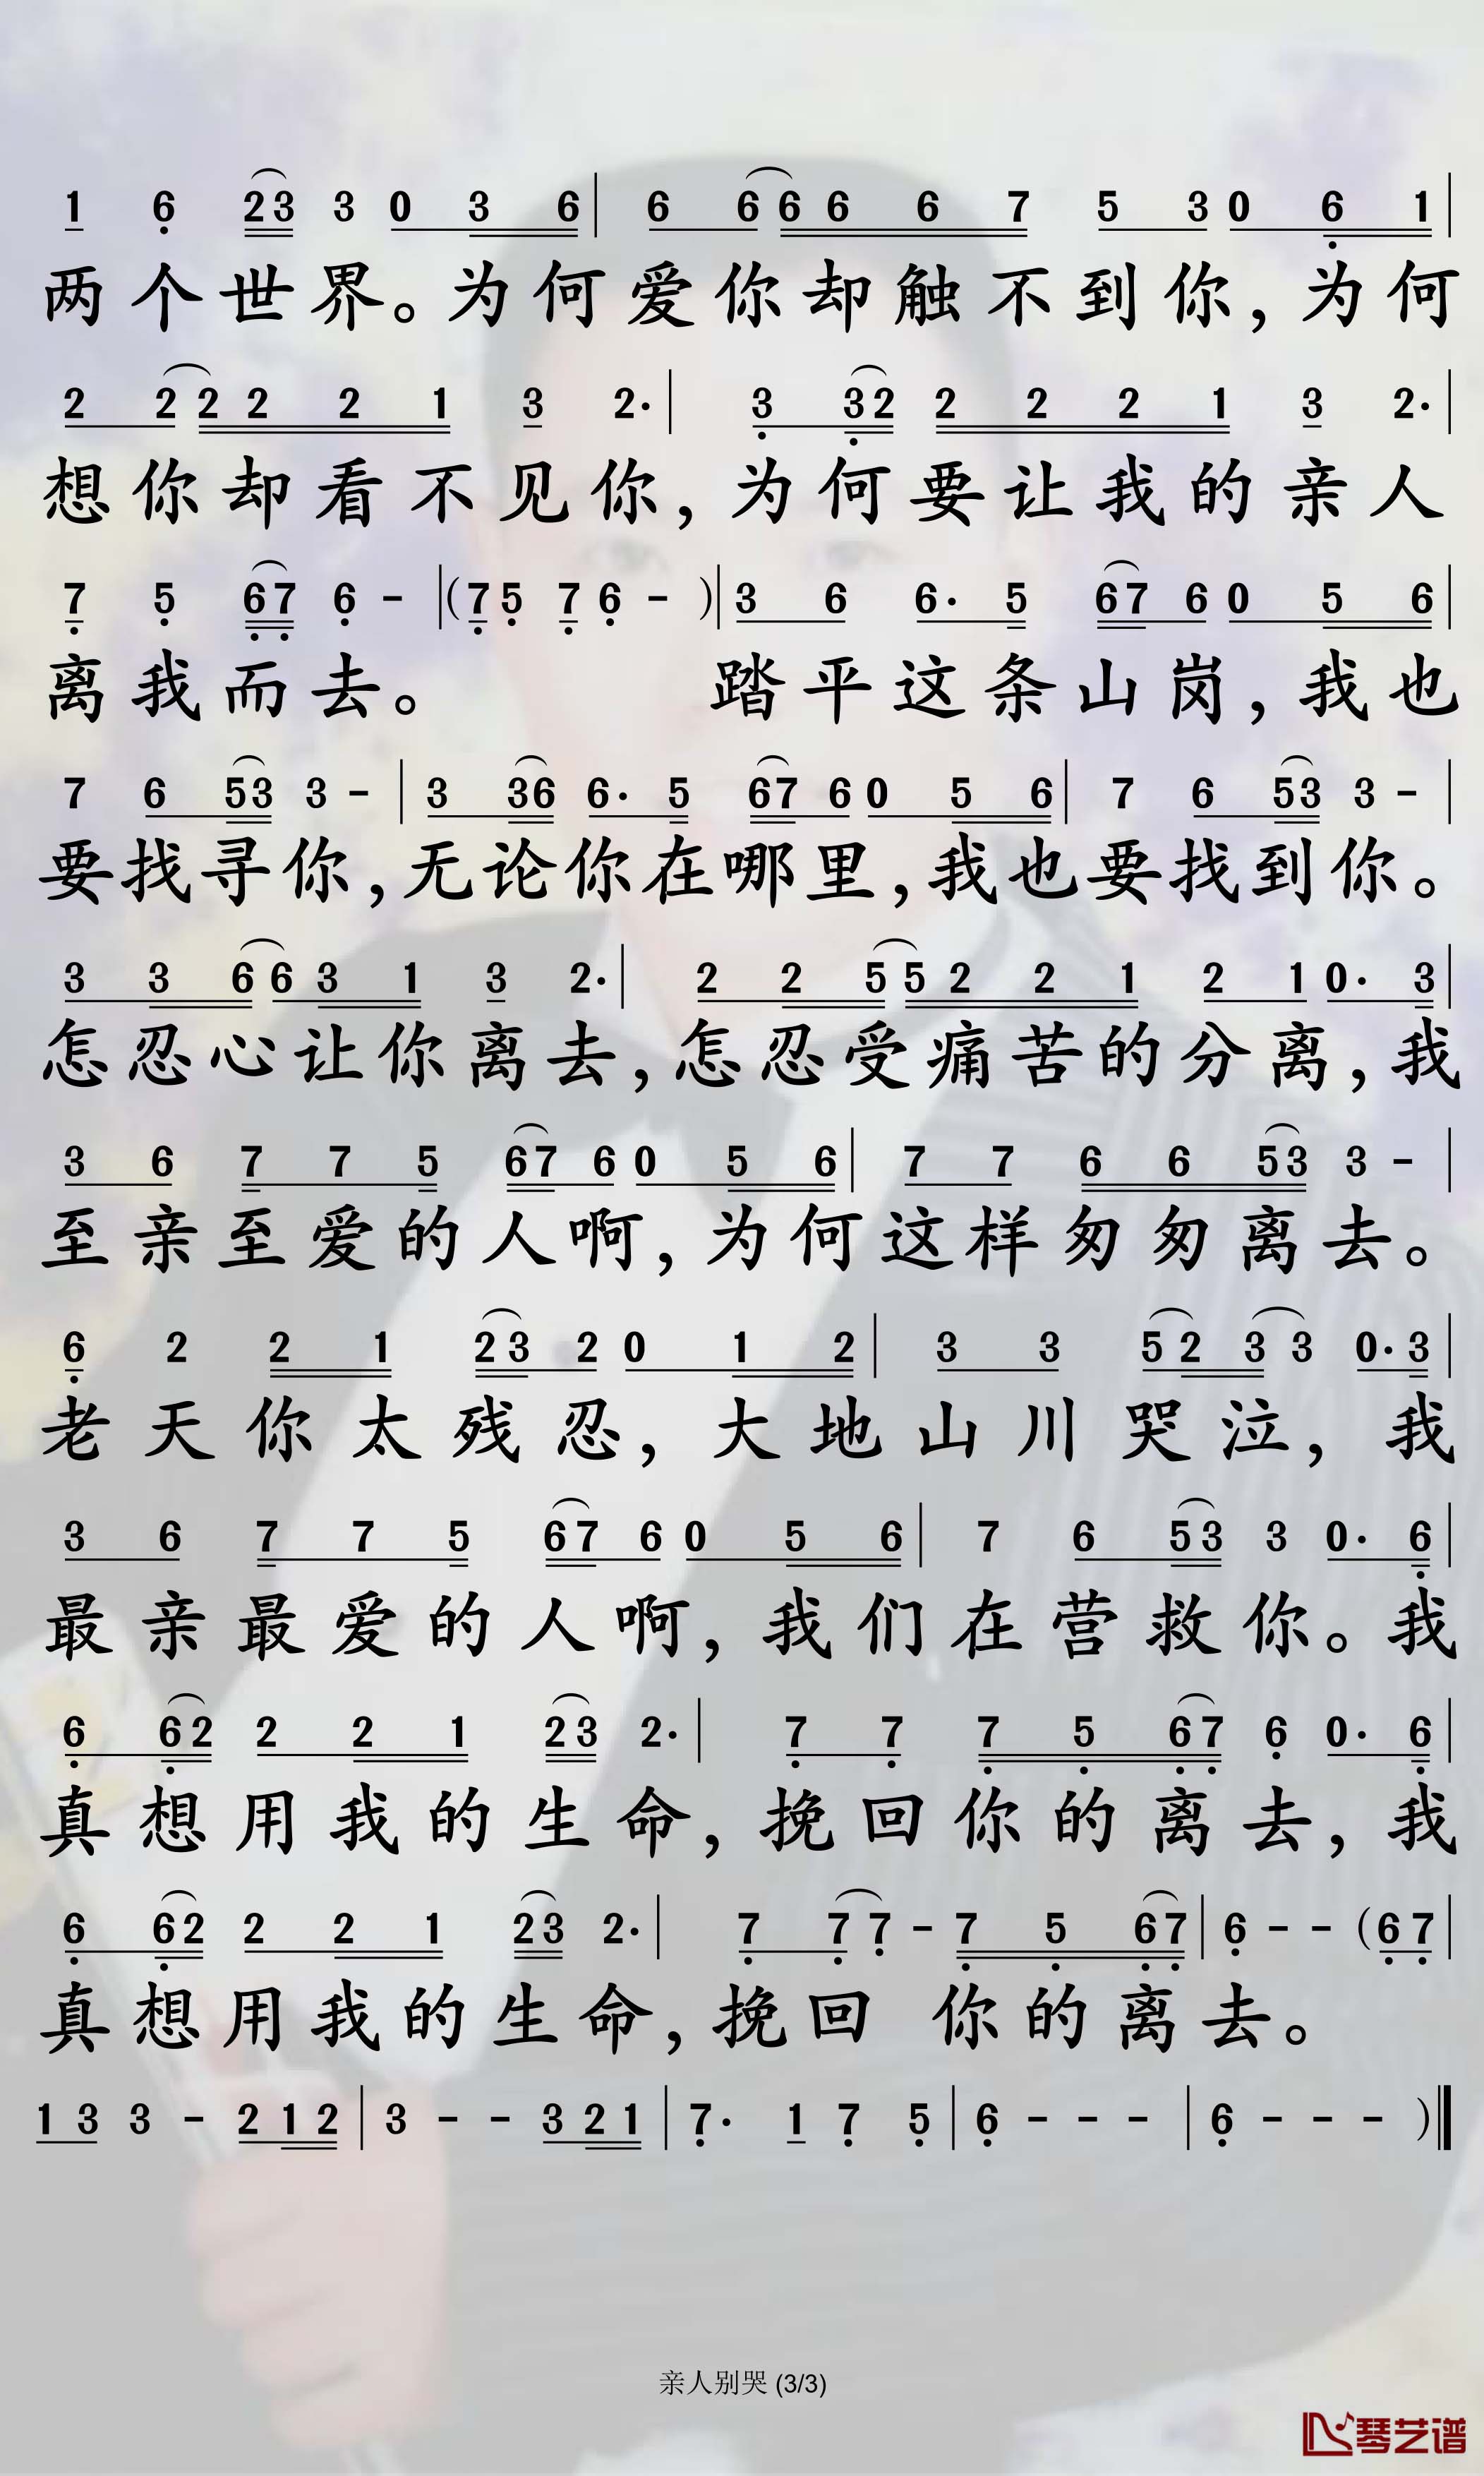 1 6 23 3 0 3 6 | 6 6 6 6 6 7 5 3 0 6 1 |
两个世界。为何爱你却触不到你,为何
2 2 2 2 2 1 3 2· | 3 32 2 2 2 1 3 2· |
想你却看不见你,为何要让我的亲人
7 5 67 6 - | (7 5 7 6 - ) | 3 6 6· 5 67 6 0 5 6 |
离我而去。 踏平这条山岗,我也
7 6 53 3 - | 3 36 6· 5 67 6 0 5 6 | 7 6 53 3 - |
要找寻你,无论你在哪里,我也要找到你。
3 3 6 6 3 1 3 2· | 2 2 5 5 2 2 1 2 1 0· 3 |
怎忍心让你离去,怎忍受痛苦的分离,我
3 6 7 7 5 67 6 0 5 6 | 7 7 6 6 53 3 - |
至亲至爱的人啊,为何这样匆匆离去。
6 2 2 1 23 2 0 1 2 | 3 3 5 2 3 3 0· 3 |
老天你太残忍,大地山川哭泣,我
3 6 7 7 5 67 6 0 5 6 | 7 6 53 3 0· 6 |
最亲最爱的人啊,我们在营救你。我
6 62 2 2 1 23 2· | 7 7 7 5 67 6 0· 6 |
真想用我的生命,挽回你的离去,我
6 62 2 2 1 23 2· | 7 7 7 - 7 5 67 | 6 - - (6 7 |
真想用我的生命,挽回 你的离去。
1 3 3 - 2 1 2 | 3 - - 3 2 1 | 7· 1 7 5 | 6 - - - | 6 - - - )‖
亲人别哭 (3/3)
琴艺谱